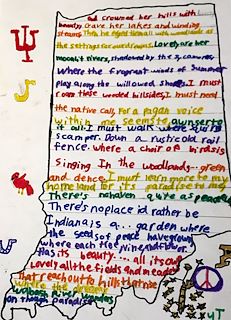 God crowned her hills with
beauty, Gave her lakes and winding
streams Then He edged them all with woodlands as
the settings for our dreams. Lovely are her
moonlit rivers, shadowed by the sycamores,
Where the fragrant winds of Summer
play along the willowed shores. I must
roam those wooded hillsides, I must heed
the native call, For a pagan voice
within me seems to answer to
it all. I must walk where squirrels
scamper Down a rustic old rail
fence, where a choir of birds is
Singing In the woodlands green
and dence. I must learn more of my
homeland for it's paradise to me,
There's no haven quite as peaceful,
There's no place i'd rather be
Indiana is a... garden where
the seeds of peace have grown,
where each tree, vine, and flower
Has its beauty... all its own
Lovely all the fields and meadows
That reach out to hills that rise
where the dreamy
Wabash River wanders
on through paradise
IU
J
U
UT